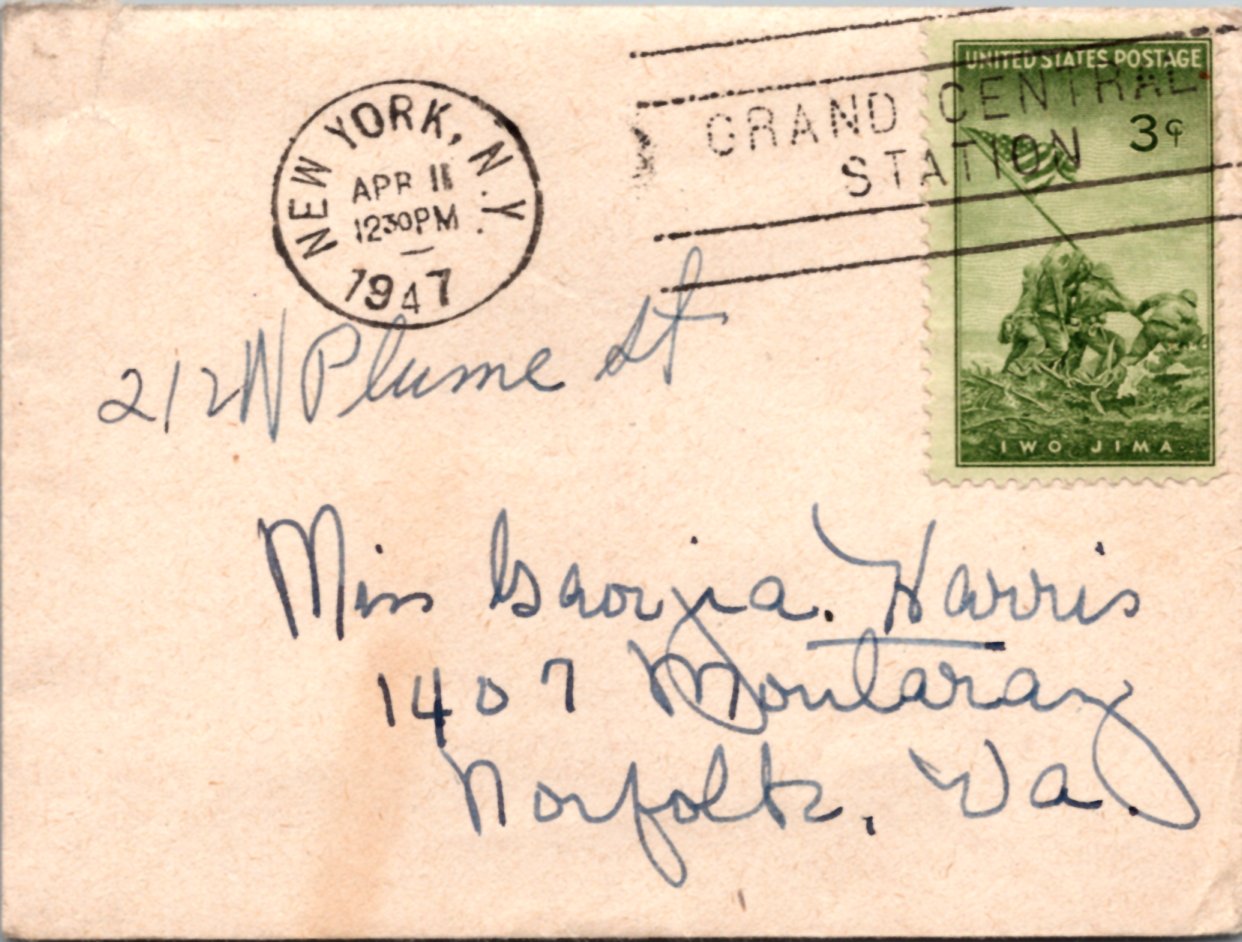 NEW YORK, N.Y.
APR 11
1230PM
1947
GRAND CENTRAL
STATION
UNITED STATES POSTAGE
3¢
IWO JIMA
212 W Plume St
Miss Georgia. Harris
1407 Montaray
Norfolk, Va.